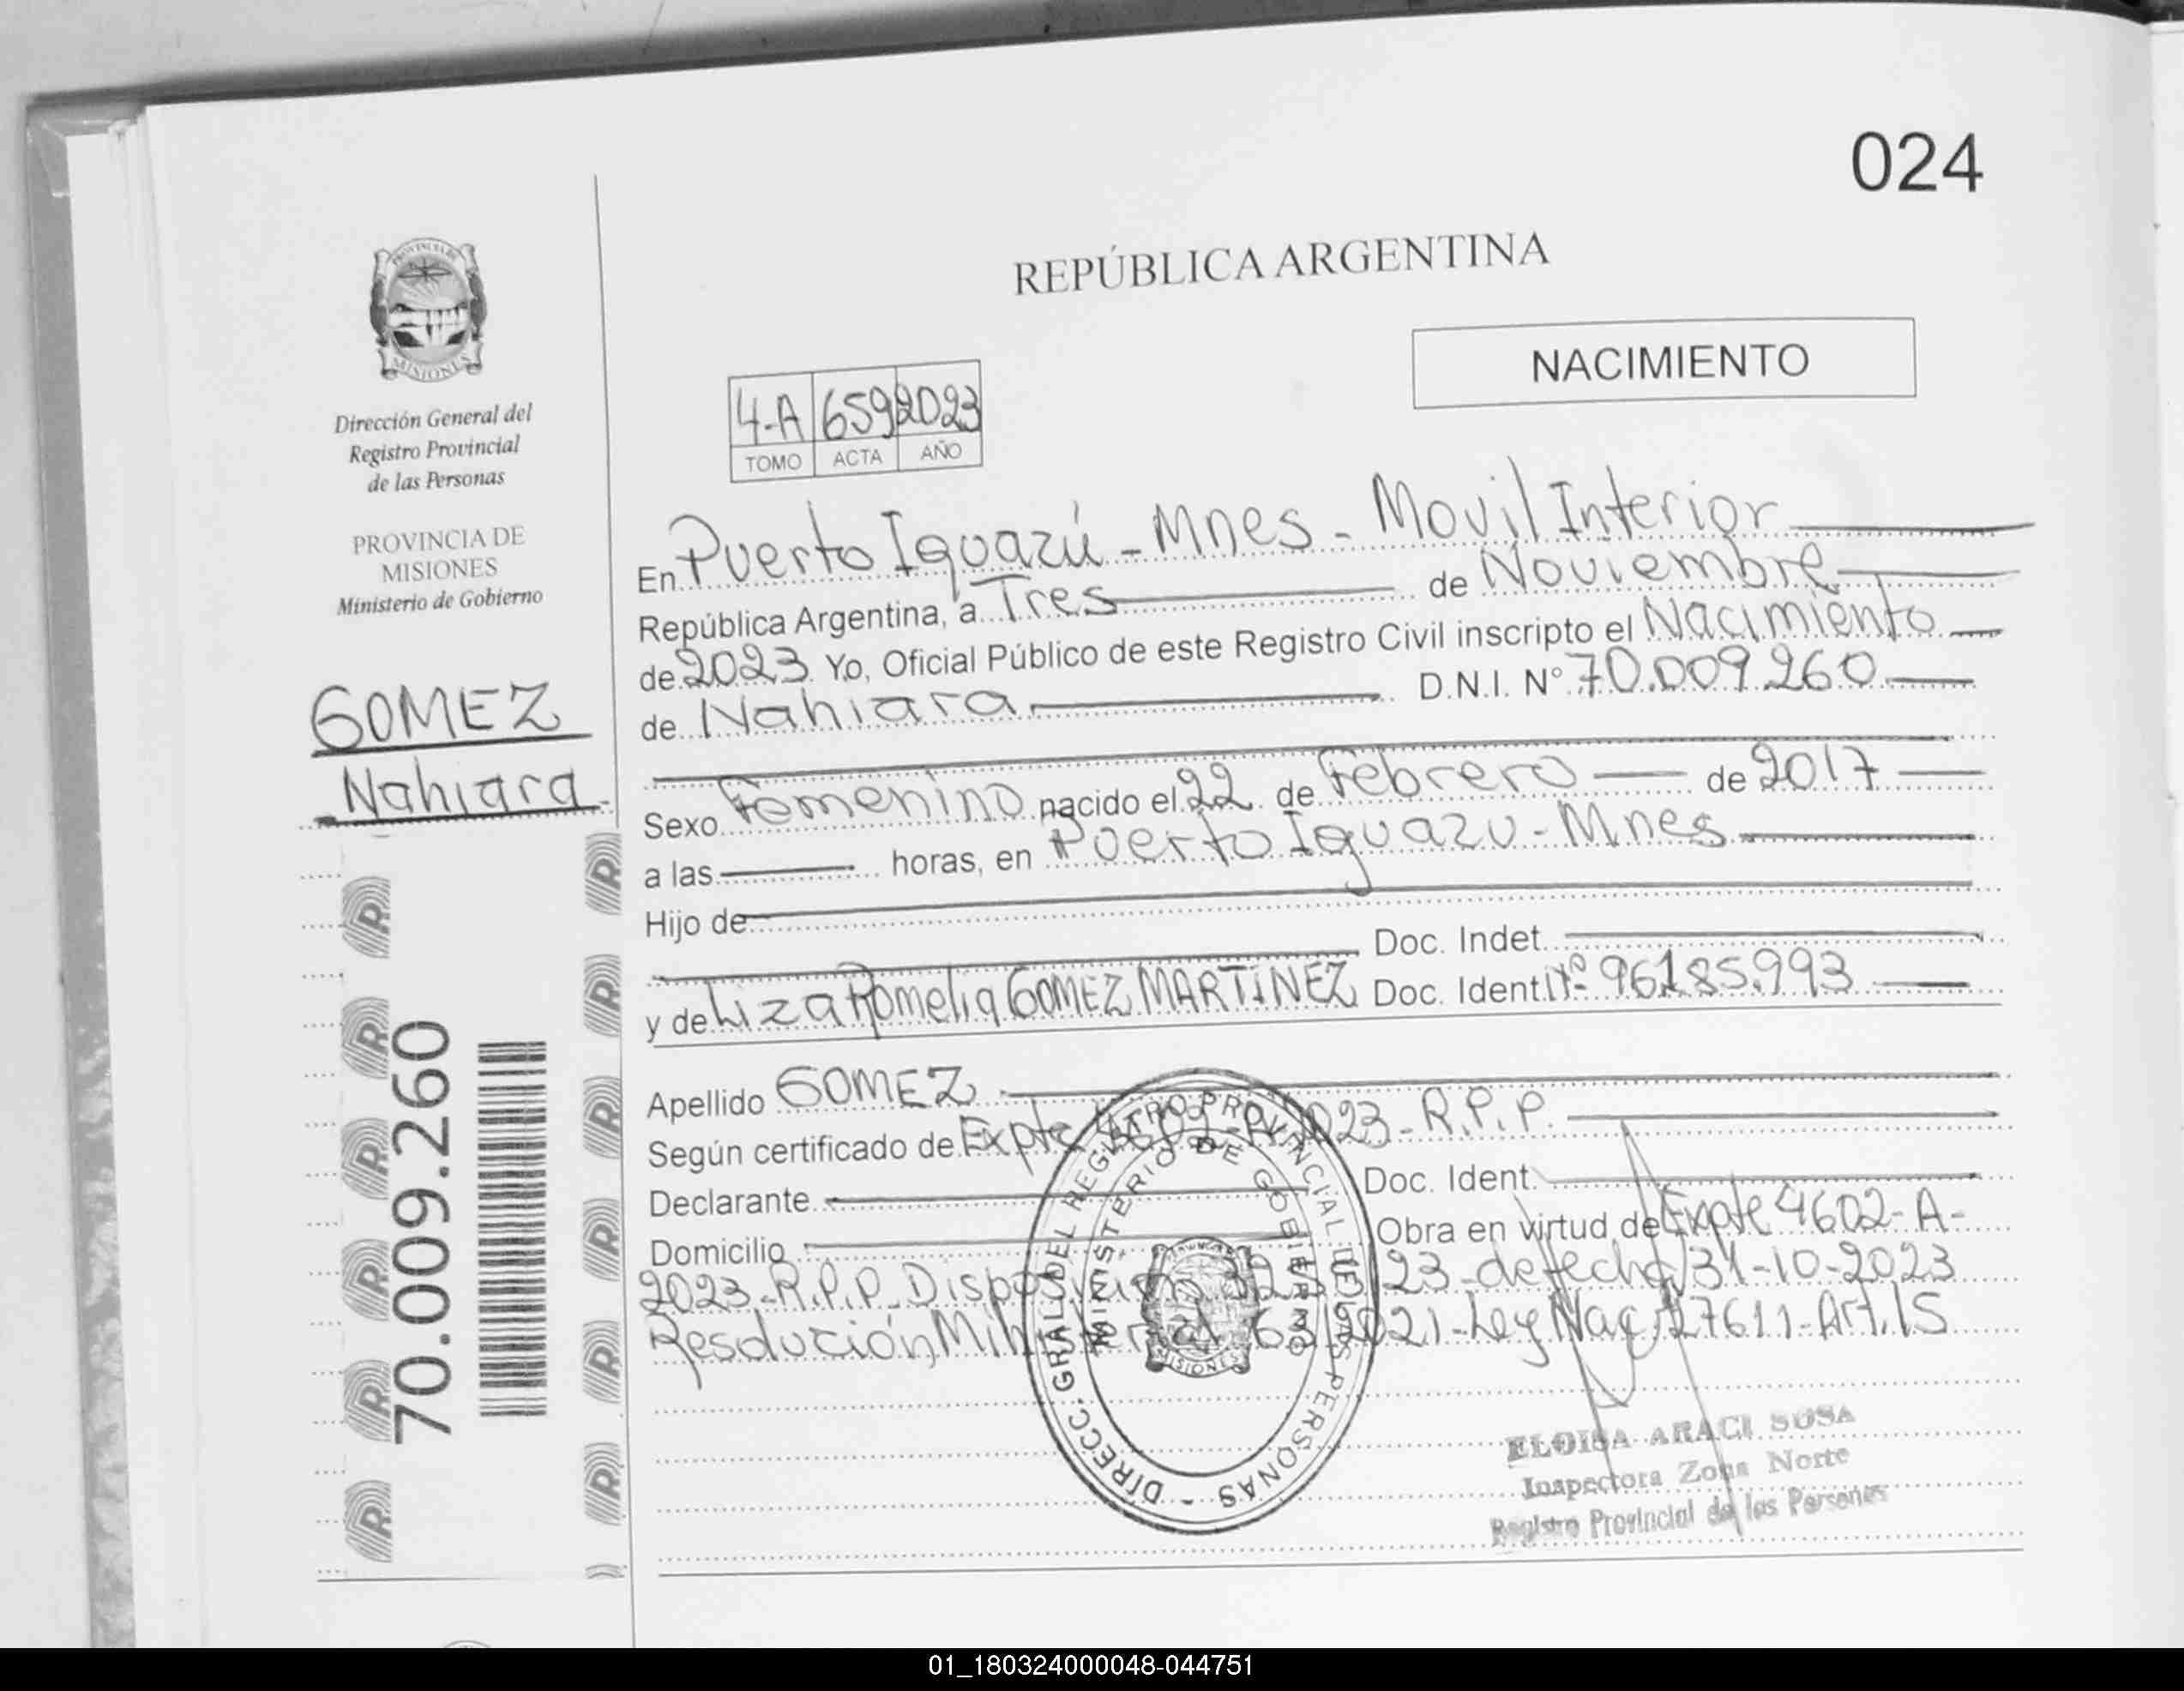 024
REPÚBLICA ARGENTINA
NACIMIENTO
PROVINCIA DE
MISIONES
Dirección General del
Registro Provincial
de las Personas
PROVINCIA DE
MISIONES
Ministerio de Gobierno
GOMEZ
Nahiara
70.009.260
4-A 659 2023
TOMO ACTA AÑO
En Puerto Iguazú - Mnes - Movil Interior
República Argentina, a Tres de Noviembre
de 2023 Yo, Oficial Público de este Registro Civil inscripto el Nacimiento
de Nahiara D.N.I. N° 70.009.260
Sexo Femenino nacido el 22 de Febrero de 2017
a las horas, en Puerto Iguazu - Mnes
Hijo de
Doc. Indet.
y de Liza Romelia GOMEZ MARTINEZ Doc. Ident. Nº 96185.993
Apellido GOMEZ
Según certificado de Expte 4602-A-2023-R.P.P.
Declarante Doc. Ident.
Domicilio Obra en virtud de Expte 4602-A-
2023-R.P.P. Disposición 23-de fecha 31-10-2023
Resolución Ministerial 63/2021-Ley Nac 27611-Art.15
DIRECC. GRAL. DEL REGISTRO PROVINCIAL DE LAS PERSONAS -
MINISTERIO DE GOBIERNO
MISIONES
ELOISA ARACI SOSA
Inspectora Zona Norte
Registro Provincial de las Personas
01_180324000048-044751